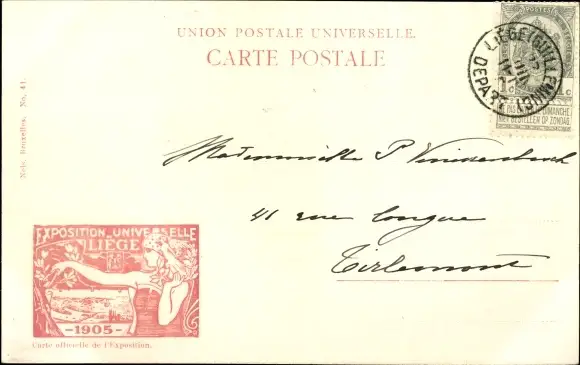 UNION POSTALE UNIVERSELLE.
CARTE POSTALE
LIÉGE (GUILLEMINS)
DEPART
1c 1c
NE PAS LIVRER LE DIMANCHE
NIET BESTELLEN OP ZONDAG
Nels, Bruxelles. No. 41.
Mademoiselle P
41 rue longue
Tirlemont
EXPOSITION UNIVERSELLE
LIÈGE
-1905-
Carte officielle de l'Exposition.